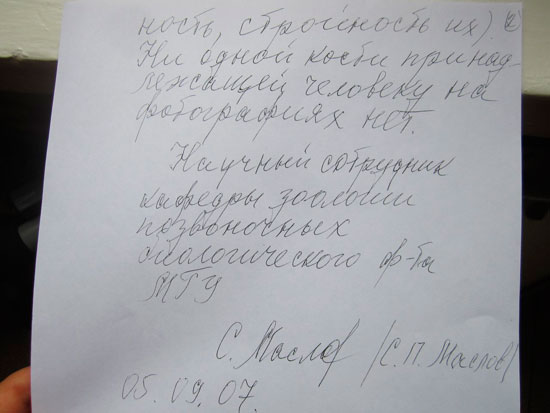 ность, стройность их).
Ни одной кости принад-
лежащей человеку на
фотографиях нет.
Научный сотрудник
кафедры зоологии
позвоночных
биологического ф-та
МГУ
С. Маслов /С.П. Маслов/
05.09.07.